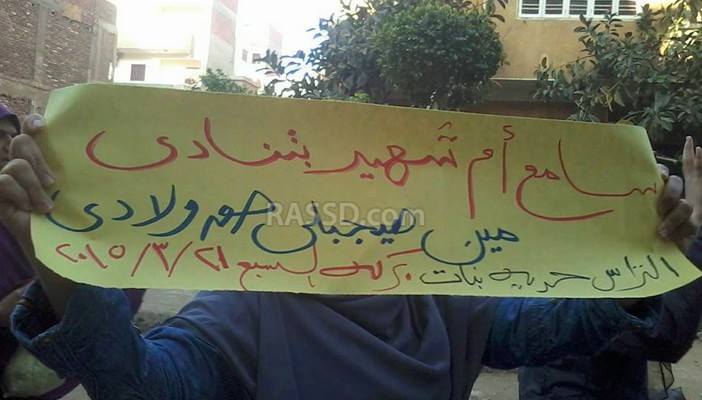 سامع أم شهيد بتنادى
مين هيجبلى حق ولادى
التراس حريه بنات بركة السبع ٢٠١٥/٣/٢١
RASSD.com